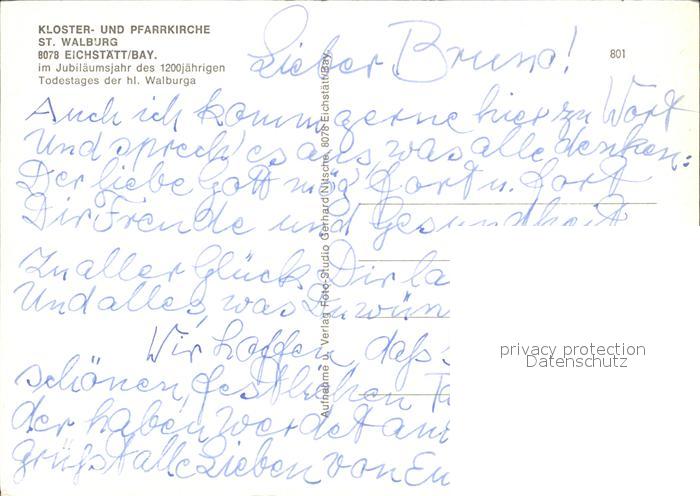 KLOSTER- UND PFARRKIRCHE
ST. WALBURG
8078 EICHSTÄTT/BAY.
im Jubiläumsjahr des 1200jährigen
Todestages der hl. Walburga
801
Lieber Bruno!
Auch ich komm gerne hier zu Wort
Und sprech' es aus, was alle denken:
Der liebe Gott mög' fort u. fort
Dir Freude und Gesundheit
Zu aller Glück Dir la
Und alles, was Du wün
Wir hoffen, daß s
schönen, festlichen Ta
der haben werdet und
grüßt alle Lieben von Eu
Aufnahme u. Verlag Foto-Studio Gerhard Nitsche, 8078 Eichstätt/Bay.
privacy protection
Datenschutz